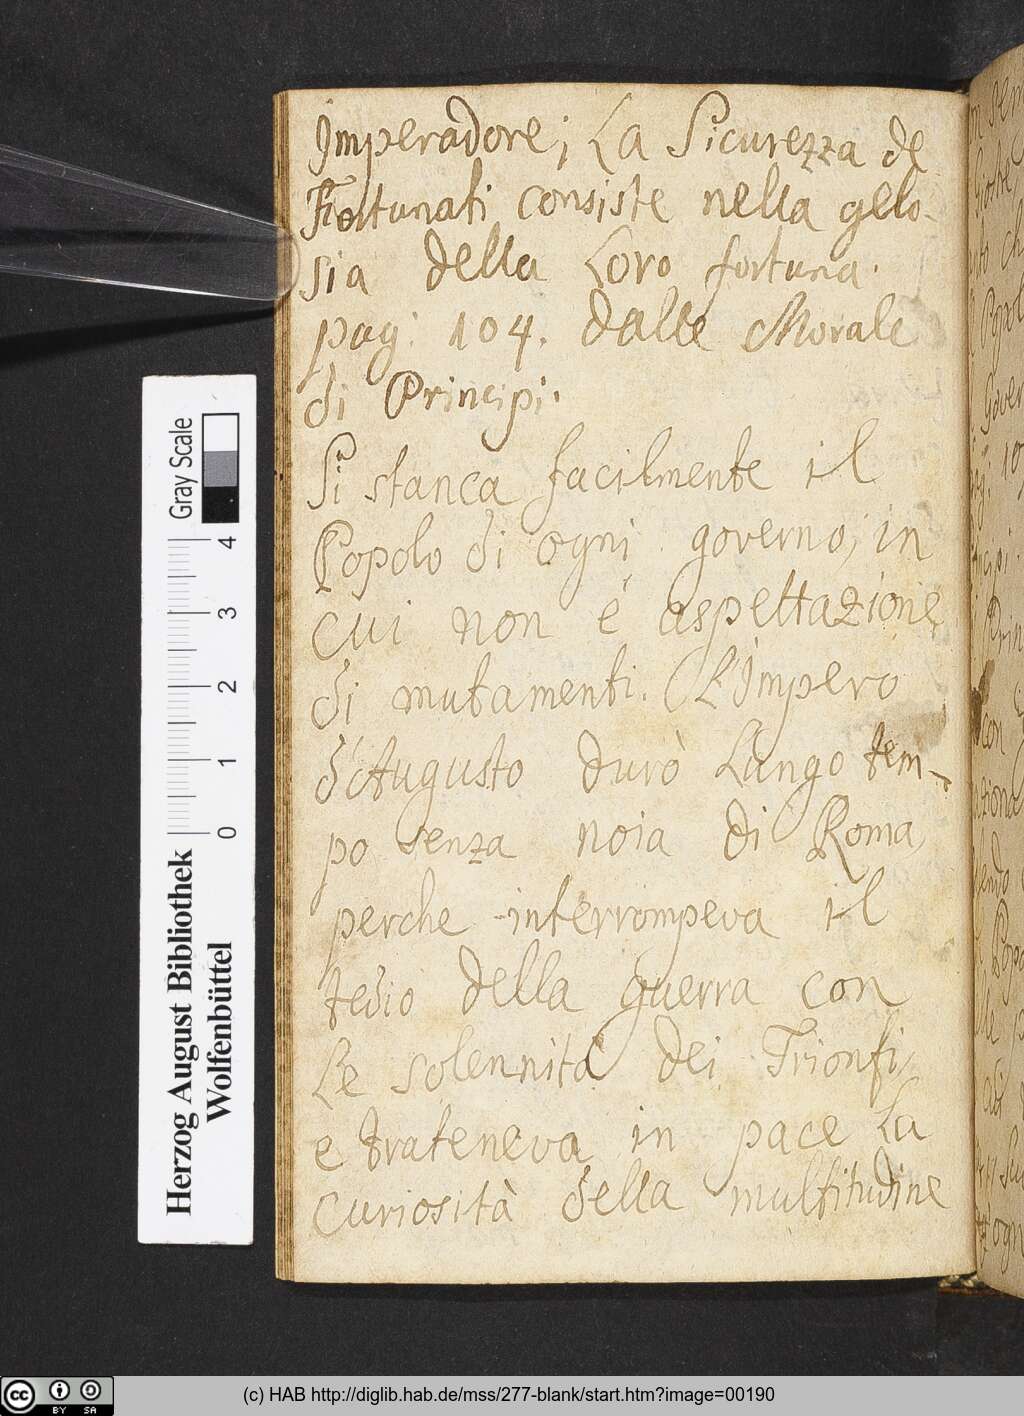 Imperadore; La Sicurezza de
Fortunati consiste nella gelo-
sia della Loro fortuna.
pag: 104. dalle Morale
di Principi.
Si stanca facilmente il
Popolo di ogni governo, in
cui non é aspettazione
di mutamenti. (L'Impero
d'Augusto durò Lungo tem-
po senza noia di Roma,
perche interrompeva il
tedio della guerra con
Le solennità dei Trionfi,
e trateneva in pace La
curiosità della multitudine
Gray Scale
0 1 2 3 4
Herzog August Bibliothek
Wolfenbüttel
cc BY SA
(c) HAB http://diglib.hab.de/mss/277-blank/start.htm?image=00190